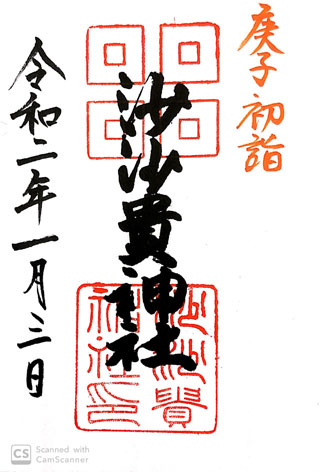 庚子初詣
沙沙貴神社
沙沙貴
神社印
令和二年一月三日
CS Scanned with
CamScanner